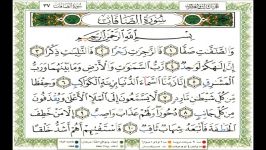 سُورَةُ الصَّافَّاتِ ٣٧
سُورَةُ الصَّافَّاتِ
بِسْمِ ٱللَّهِ ٱلرَّحْمَٰنِ ٱلرَّحِيمِ
وَٱلصَّٰٓفَّٰتِ صَفًّا ١ فَٱلزَّٰجِرَٰتِ زَجْرًا ٢ فَٱلتَّٰلِيَٰتِ ذِكْرًا ٣
إِنَّ إِلَٰهَكُمْ لَوَٰحِدٌ ٤ رَّبُّ ٱلسَّمَٰوَٰتِ وَٱلْأَرْضِ وَمَا بَيْنَهُمَا وَرَبُّ
ٱلْمَشَٰرِقِ ٥ إِنَّا زَيَّنَّا ٱلسَّمَآءَ ٱلدُّنْيَا بِزِينَةٍ ٱلْكَوَاكِبِ ٦ وَحِفْظًا
مِّن كُلِّ شَيْطَٰنٍ مَّارِدٍ ٧ لَّا يَسَّمَّعُونَ إِلَى ٱلْمَلَإِ ٱلْأَعْلَىٰ وَيُقْذَفُونَ
مِن كُلِّ جَانِبٍ ٨ دُحُورًا وَلَهُمْ عَذَابٌ وَاصِبٌ ٩ إِلَّا مَنْ خَطِفَ
ٱلْخَطْفَةَ فَأَتْبَعَهُۥ شِهَابٌ ثَاقِبٌ ١٠ فَٱسْتَفْتِهِمْ أَهُمْ أَشَدُّ خَلْقًا